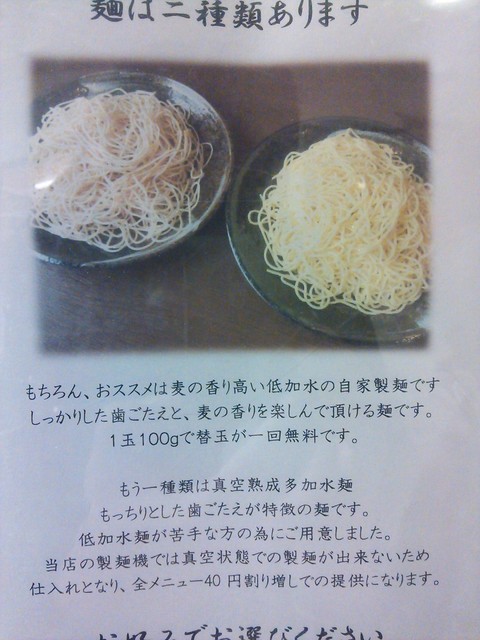 麺は二種類あります
もちろん、おススメは麦の香り高い低加水の自家製麺です
しっかりした歯ごたえと、麦の香りを楽しんで頂ける麺です。
1玉100gで替玉が一回無料です。
もう一種類は真空熟成多加水麺
もっちりとした歯ごたえが特徴の麺です。
低加水麺が苦手な方の為にご用意しました。
当店の製麺機では真空状態での製麺が出来ないため
仕入れとなり、全メニュー40 円割り増しでの提供になります。
お好みでお選びください